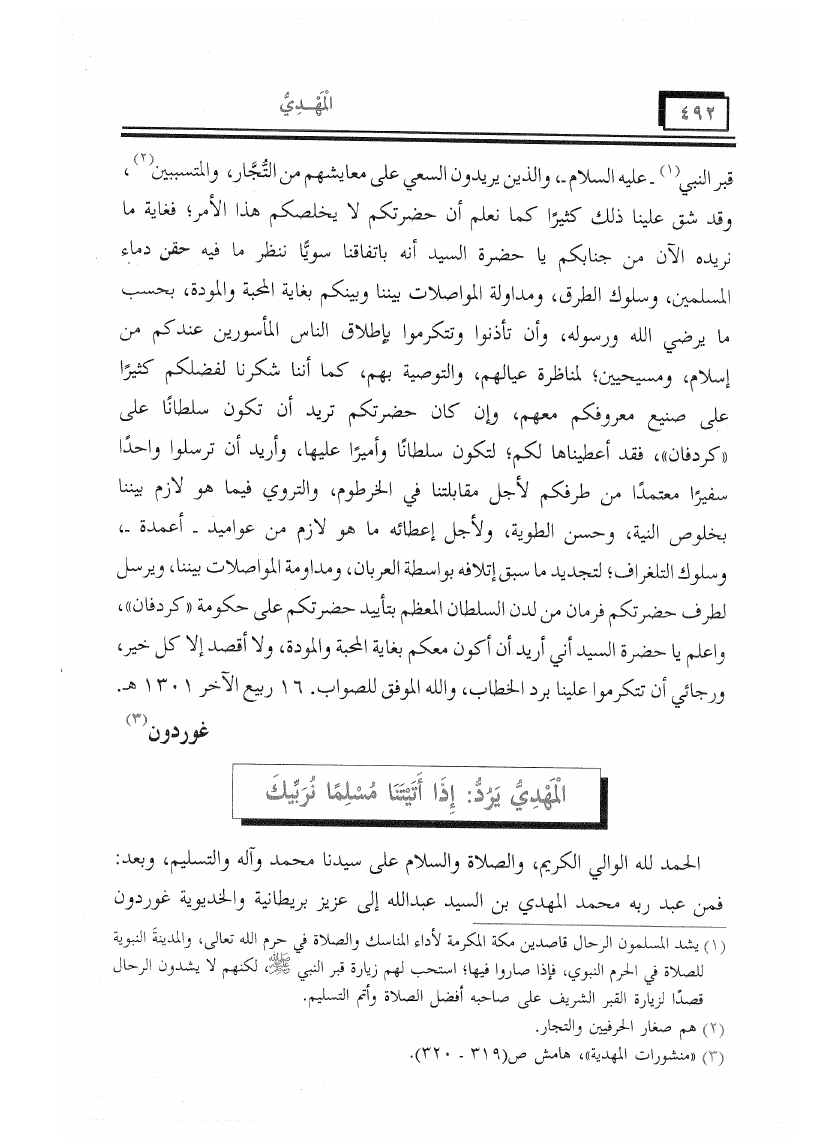 ٤٩٢
الْمَهْـدِيُّ
قبر النبي(١) ـ عليه السلام ـ، والذين يريدون السعي على معايشهم من التُّجَّار، والمتسببين(٢)،
وقد شق علينا ذلك كثيرًا كما نعلم أن حضرتكم لا يخلصكم هذا الأمر؛ فغاية ما
نريده الآن من جنابكم يا حضرة السيد أنه باتفاقنا سويًّا ننظر ما فيه حقن دماء
المسلمين، وسلوك الطرق، ومداولة المواصلات بيننا وبينكم بغاية المحبة والمودة، بحسب
ما يرضي الله ورسوله، وأن تأذنوا وتتكرموا بإطلاق الناس المأسورين عندكم من
إسلام، ومسيحيين؛ لمناظرة عيالهم، والتوصية بهم، كما أننا شكرنا لفضلكم كثيرًا
على صنيع معروفكم معهم، وإن كان حضرتكم تريد أن تكون سلطانًا على
«كردفان»، فقد أعطيناها لكم؛ لتكون سلطانًا وأميرًا عليها، وأريد أن ترسلوا واحدًا
سفيرًا معتمدًا من طرفكم لأجل مقابلتنا في الخرطوم، والتروي فيما هو لازم بيننا
بخلوص النية، وحسن الطوية، ولأجل إعطائه ما هو لازم من عواميد ـ أعمدة ـ،
وسلوك التلغراف؛ لتجديد ما سبق إتلافه بواسطة العربان، ومداومة المواصلات بيننا، ويرسل
لطرف حضرتكم فرمان من لدن السلطان المعظم بتأييد حضرتكم على حكومة «كردفان»،
واعلم يا حضرة السيد أني أريد أن أكون معكم بغاية المحبة والمودة، ولا أقصد إلا كل خير،
ورجائي أن تتكرموا علينا برد الخطاب، والله الموفق للصواب. ١٦ ربيع الآخر ١٣٠١ هـ.
غوردون(٣)
الْمَهْدِيُّ يَرُدُّ: إِذَا أَتَيْتَنَا مُسْلِمًا نُرَبِّيكَ
الحمد لله الوالي الكريم، والصلاة والسلام على سيدنا محمد وآله والتسليم، وبعد:
فمن عبد ربه محمد المهدي بن السيد عبدالله إلى عزيز بريطانية والخديوية غوردون
(١) يشد المسلمون الرحال قاصدين مكة المكرمة لأداء المناسك والصلاة في حرم الله تعالى، والمدينةَ النبوية
للصلاة في الحرم النبوي، فإذا صاروا فيها؛ استحب لهم زيارة قبر النبي ﷺ، لكنهم لا يشدون الرحال
قصدًا لزيارة القبر الشريف على صاحبه أفضل الصلاة وأتم التسليم.
(٢) هم صغار الحرفيين والتجار.
(٣) «منشورات المهدية»، هامش ص(٣١٩ ـ ٣٢٠).